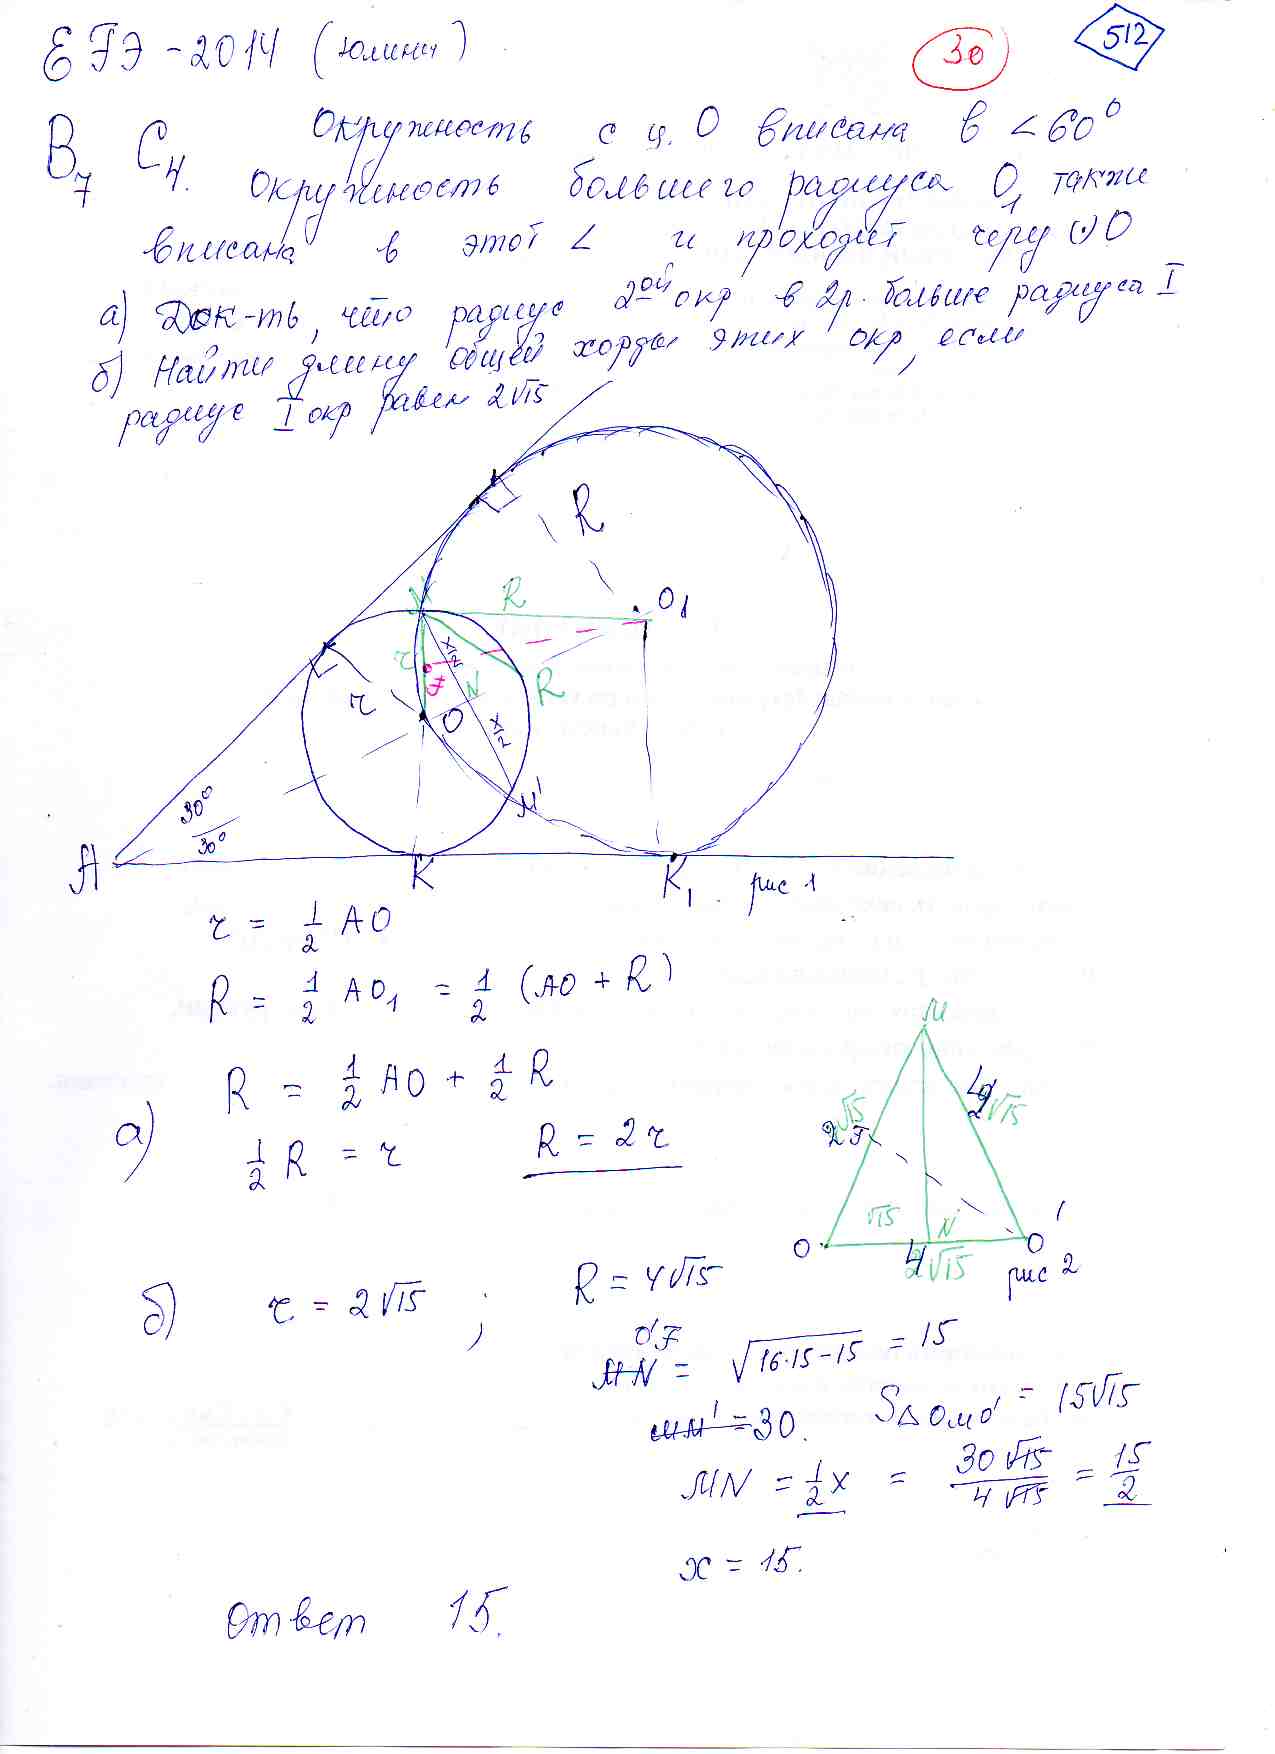 ЕГЭ-2014 (юлини)
30
512
В7 С4. Окружность с ц. О вписана в ∠60°
Окружность большего радиуса O₁ также
вписана в этот ∠ и проходит через (·) О
а) Док-ть, что радиус 2ой окр в 2р. больше радиуса I
б) Найти длину общей хорды этих окр, если
радиус I окр равен 2√15
R
R
O₁
r
x/2
F
N
R
r
O
x/2
30°
30°
M'
A
K
K₁
рис 1
r = 1/2 AO
R = 1/2 AO₁ = 1/2 (AO + R)
R = 1/2 AO + 1/2 R
а) 1/2 R = r R = 2r
M
2√15
F
4√15
√15
N
O
4√15
O'
рис 2
б) r = 2√15 ; R = 4√15
O'F
MN = √16·15-15 = 15
MM' = 30. S△OMO' = 15√15
MN = 1/2 x = 30√15/4√15 = 15/2
x = 15.
Ответ 15.